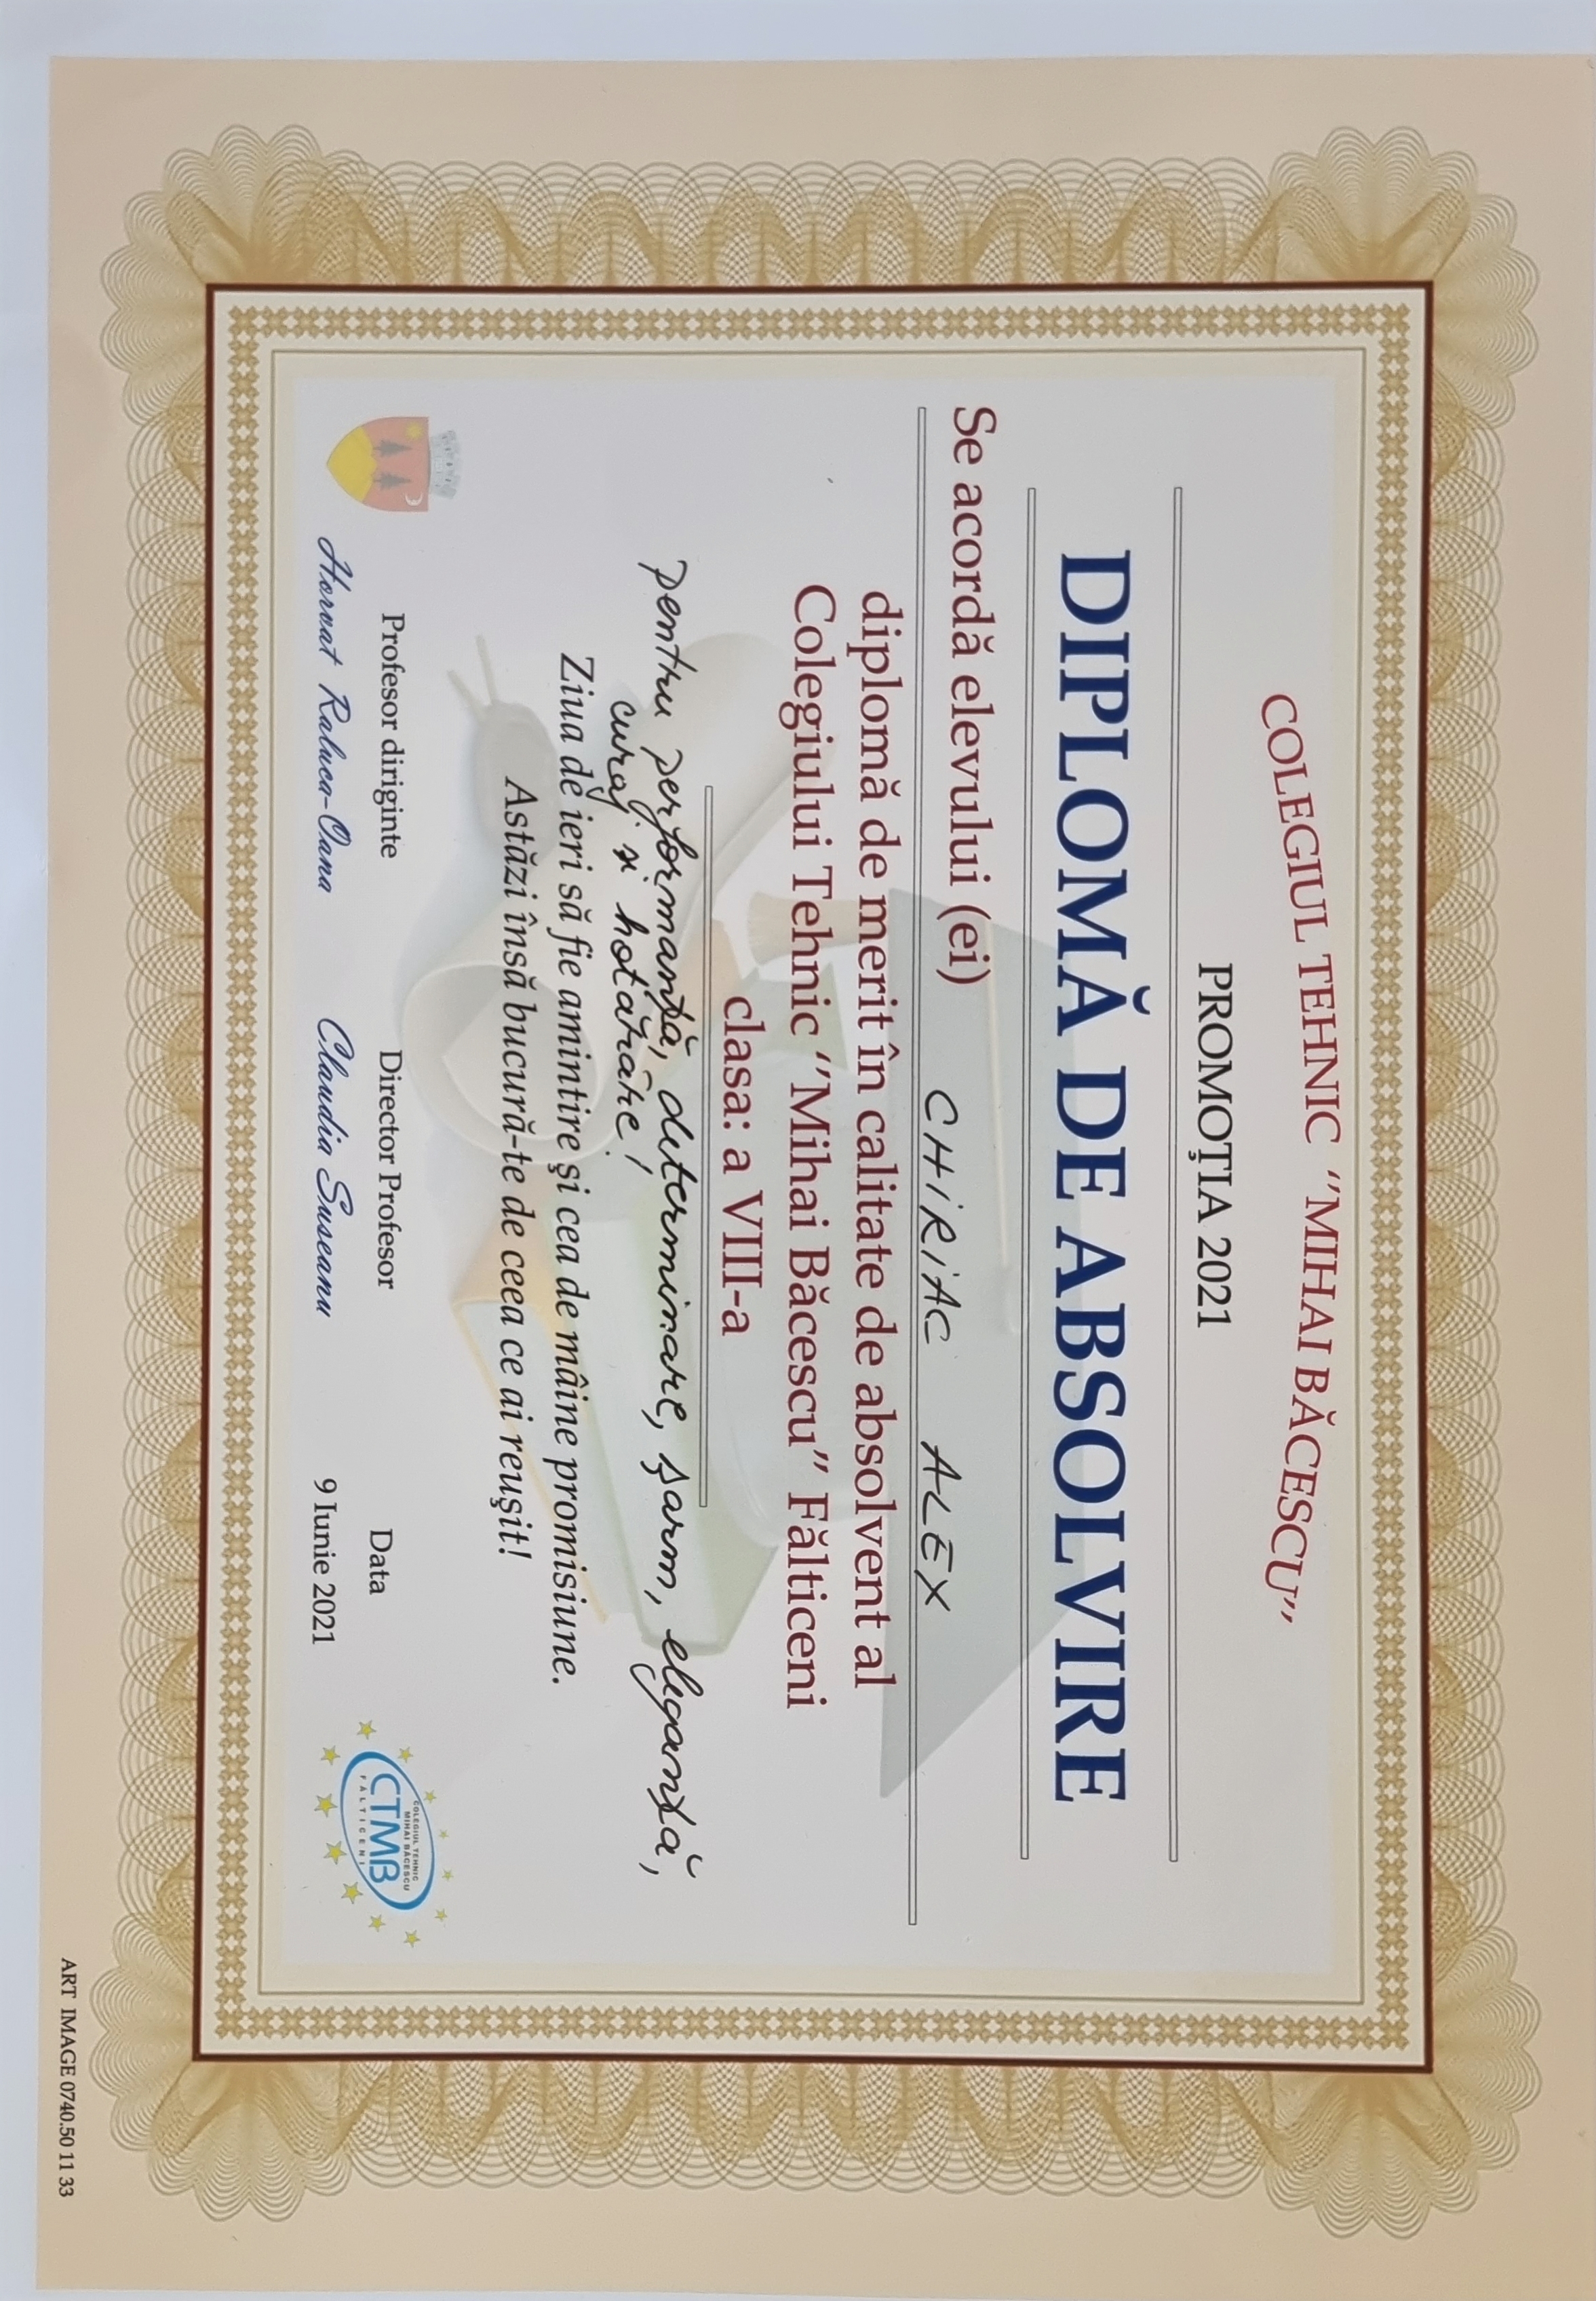 COLEGIUL TEHNIC ‘’MIHAI BĂCESCU’’
PROMOŢIA 2021
DIPLOMĂ DE ABSOLVIRE
Se acordă elevului (ei) CHIRIAC ALEX
diplomă de merit în calitate de absolvent al
Colegiului Tehnic ‘’Mihai Băcescu’’ Fălticeni
clasa: a VIII-a
pentru performanţă, determinare, şarm, eleganţă,
curaj şi hotărâre!
Ziua de ieri să fie amintire şi cea de mâine promisiune.
Astăzi însă bucură-te de ceea ce ai reuşit!
Profesor diriginte
Horvat Raluca-Oana
Director Profesor
Claudia Suseanu
Data
9 Iunie 2021
COLEGIUL TEHNIC
MIHAI BĂCESCU
CTMB
FĂLTICENI
ART IMAGE 0740.50 11 33